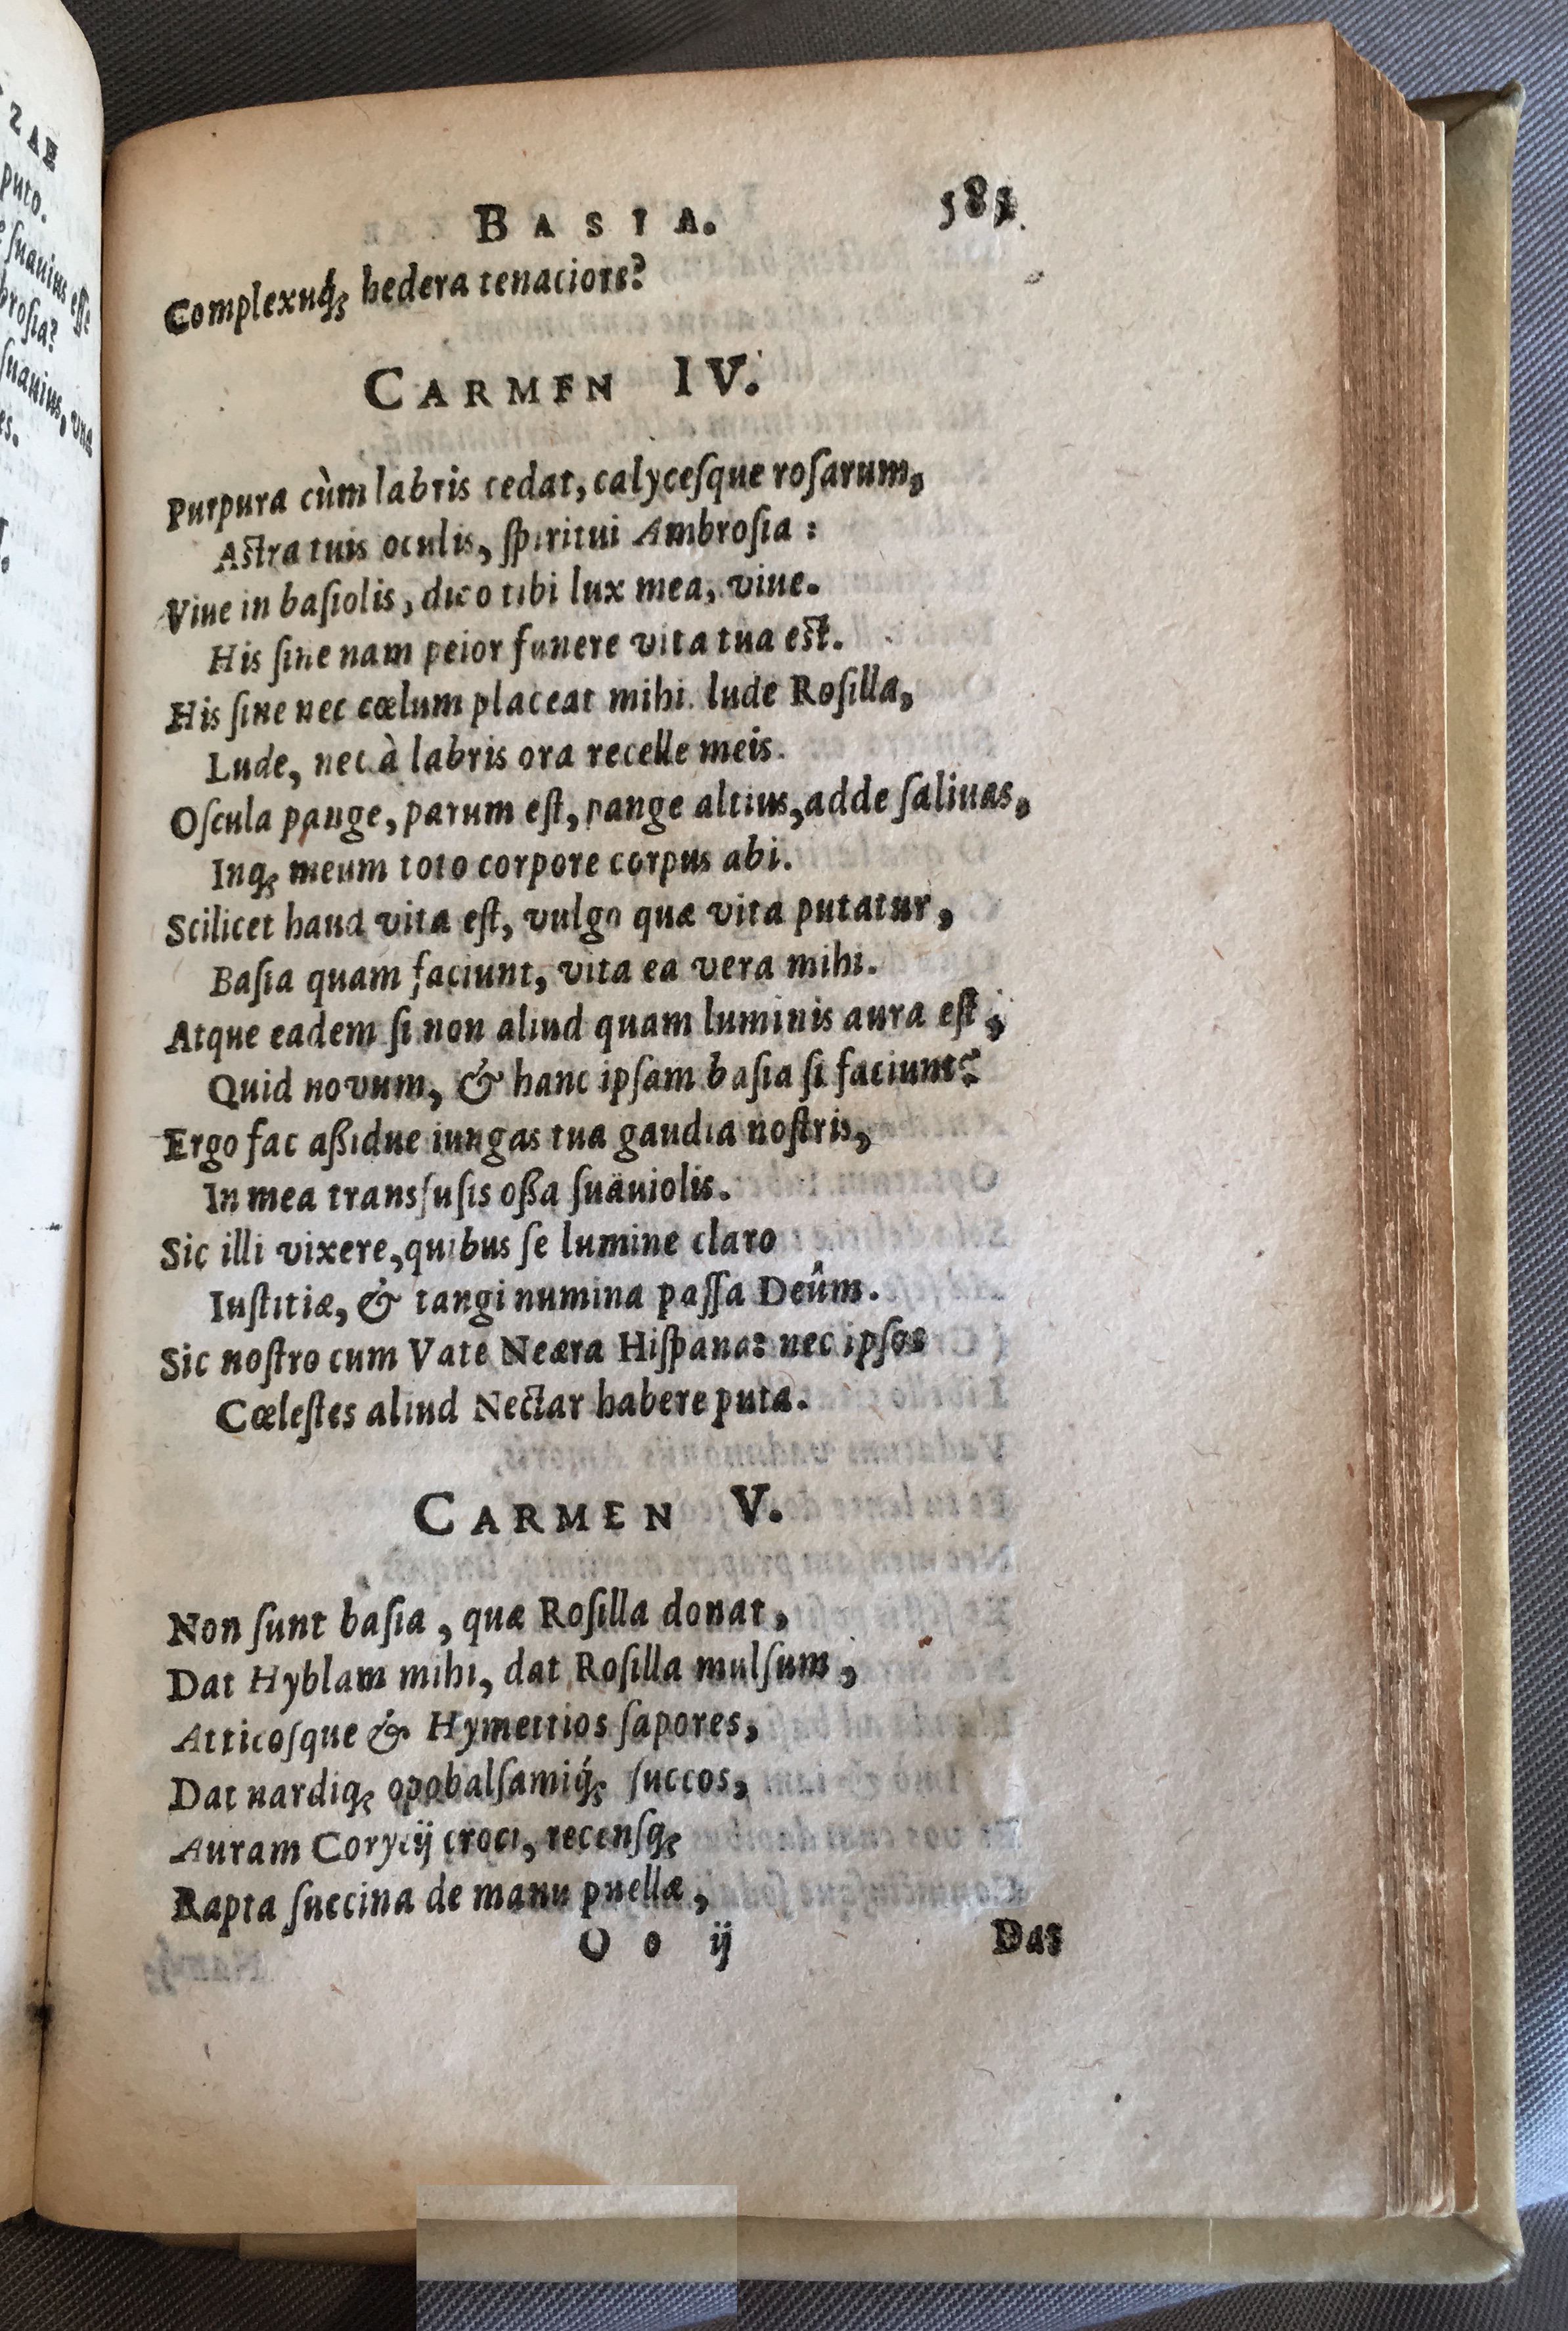 BASIA. 581
Complexuq́ꝫ hedera tenaciore?
CARMEN IV.
Purpura cùm labris cedat, calyceſque roſarum,
Aſtra tuis oculis, ſpiritui Ambroſia:
Viue in baſiolis, dico tibi lux mea, viue.
His ſine nam peior funere vita tua eſt.
His ſine nec cœlum placeat mihi. lude Roſilla,
Lude, nec à labris ora recelle meis.
Oſcula pange, parum eſt, pange altius, adde ſaliuas,
Inqꝫ meum toto corpore corpus abi.
Scilicet haud vita eſt, vulgo quæ vita putatur,
Baſia quam faciunt, vita ea vera mihi.
Atque eadem ſi non aliud quam luminis aura eſt,
Quid novum, & hanc ipſam baſia ſi faciunt?
Ergo fac aßidue iungas tua gaudia noſtris,
In mea transfuſis oßa ſuäuiolis.
Sic illi vixere, quibus ſe lumine claro
Iuſtitiæ, & tangi numina paſſa Deûm.
Sic noſtro cum Vate Neæra Hiſpana: nec ipſos
Cœleſtes aliud Nectar habere puta.
CARMEN V.
Non ſunt baſia, quæ Roſilla donat,
Dat Hyblam mihi, dat Roſilla mulſum,
Atticoſque & Hymettios ſapores,
Dat nardiqꝫ opobalſamiq́ꝫ ſuccos,
Auram Corycij croci, recenſqꝫ
Rapta ſuccina de manu puellæ,
Oo ij Dat
ZAE
puto.
ſuauius eſſe
broſia?
ſuauius, vna
es.